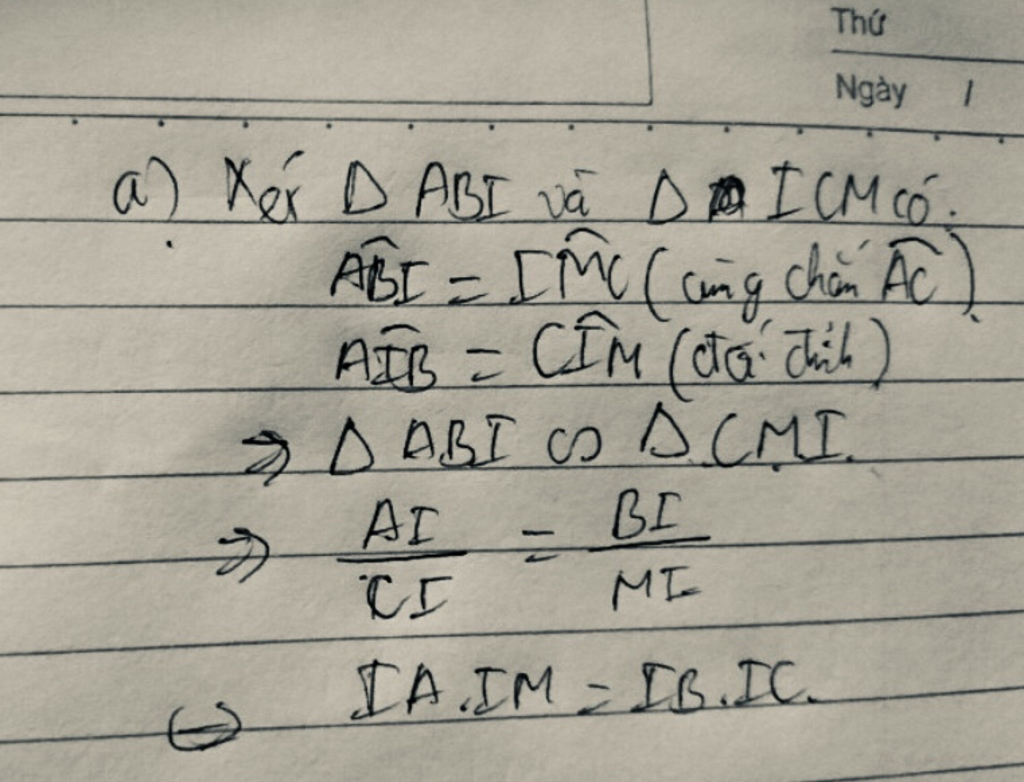 Thứ
Ngày /
a) Xét Δ ABI và Δ ICM có:
\widehat{ABI} = \widehat{IMC} (cùng chắn \overparen{AC})
\widehat{AIB} = \widehat{CIM} (đối đỉnh)
⇒ Δ ABI ∽ Δ CMI.
⇒ \frac{AI}{CI} = \frac{BI}{MI}
(=) IA.IM = IB.IC.